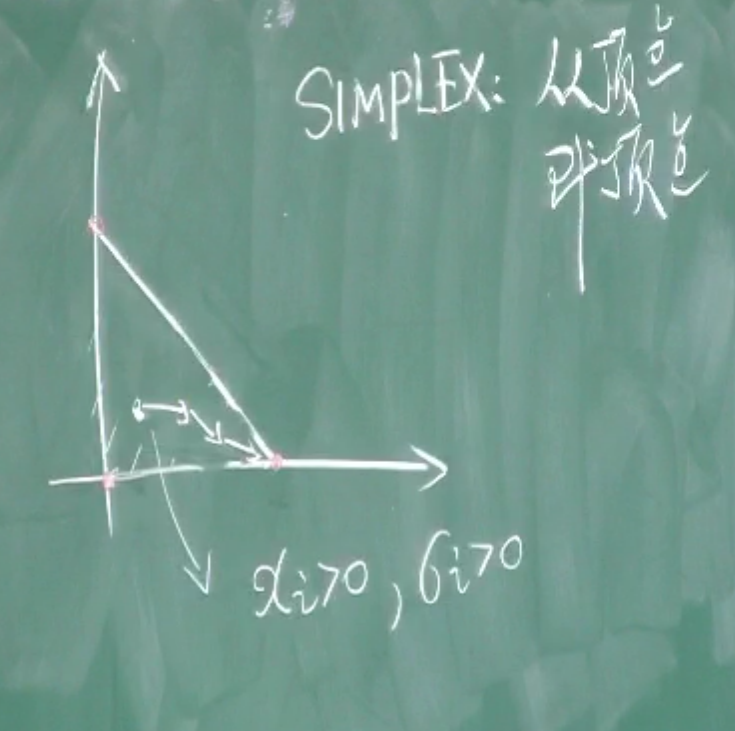 SIMPLEX: 从顶点
到顶点
xi>0, σi>0